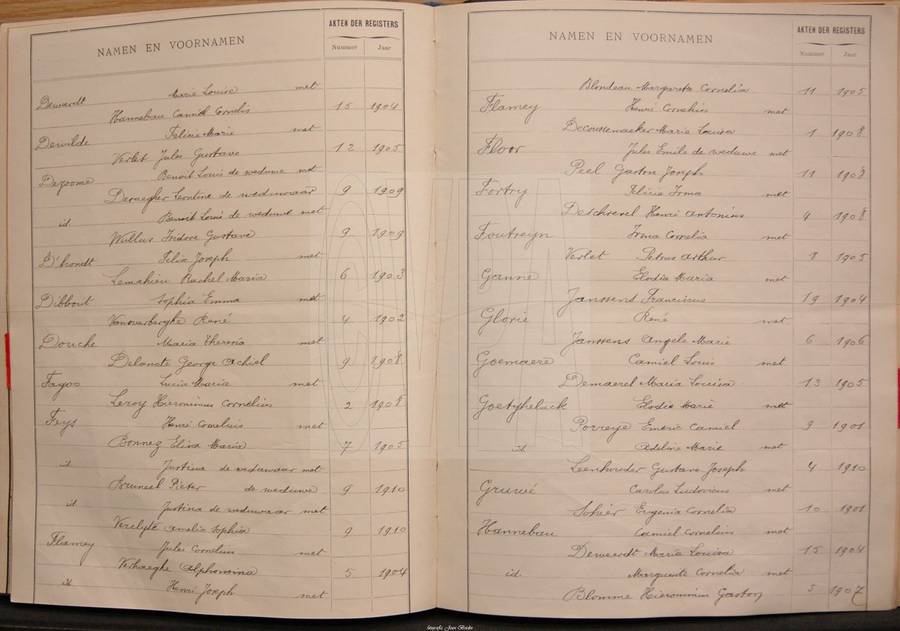 NAMEN EN VOORNAMEN
AKTEN DER REGISTERS
Nummer Jaar
Dewaerdt Marie Louise met
Hannebau Camiel Cornelis 15 1904
Dewilde Felicie Marie met
Verlet Jules Gustave 12 1905
Dezoome Benoit Louis de weduwe met
Deraegher Leontine de weduwaar 9 1909
id Benoit Louis de weduwe met
Willus Isidore Gustave 9 1909
D'hondt Felix Joseph met
Lemahieu Rachel Maria 6 1903
Dibbout Sophia Emma met
Vanoverberghe René 4 1902
Douche Maria Theresia met
Delancte George Achiel 9 1908
Fayos Lucia Maria met
Leroy Hieronimus Cornelius 2 1908
Feys Henri Cornelius met
Bonnez Elisa Marie 7 1905
id Justina de weduwaar met
Pieter de weduwe 9 1910
id Justina de weduwaar met
Amelia Sophia 9 1910
Flamey Jules Cornelius met
Verhaeghe Alphonsina 5 1904
id Henri Joseph met
NAMEN EN VOORNAMEN
AKTEN DER REGISTERS
Nummer Jaar
Blondeau Margareta Cornelia 11 1905
Flamey Henri Cornelius met
Decoussemaeker Marie Louisa 1 1908
Floor Jules Emile de weduwe met
Peel Gaston Joseph 11 1908
Fortry Elicia Irma met
Deschrevel Henri Antonius 4 1908
Foutreyn Irma Cornelia met
Verlet Petrus Arthur 8 1905
Ganne Elodia Maria met
Janssens Franciscus 19 1904
Glorie René met
Janssens Angèle Marie 6 1906
Goemaere Camiel Louis met
Demaerel Maria Louisa 13 1905
Goetgheluck Elodie Marie met
Porreye Emeric Camiel 9 1901
id Adeline Marie met
Leenknecht Gustave Joseph 4 1910
Gruwé Carolus Ludovicus met
Sohier Eugenia Cornelia 10 1901
Hannebau Camiel Cornelius met
Dewaerdt Maria Louisa 15 1904
id Marguerite Cornelia met
Blomme Hieronimus Gaston 5 1907